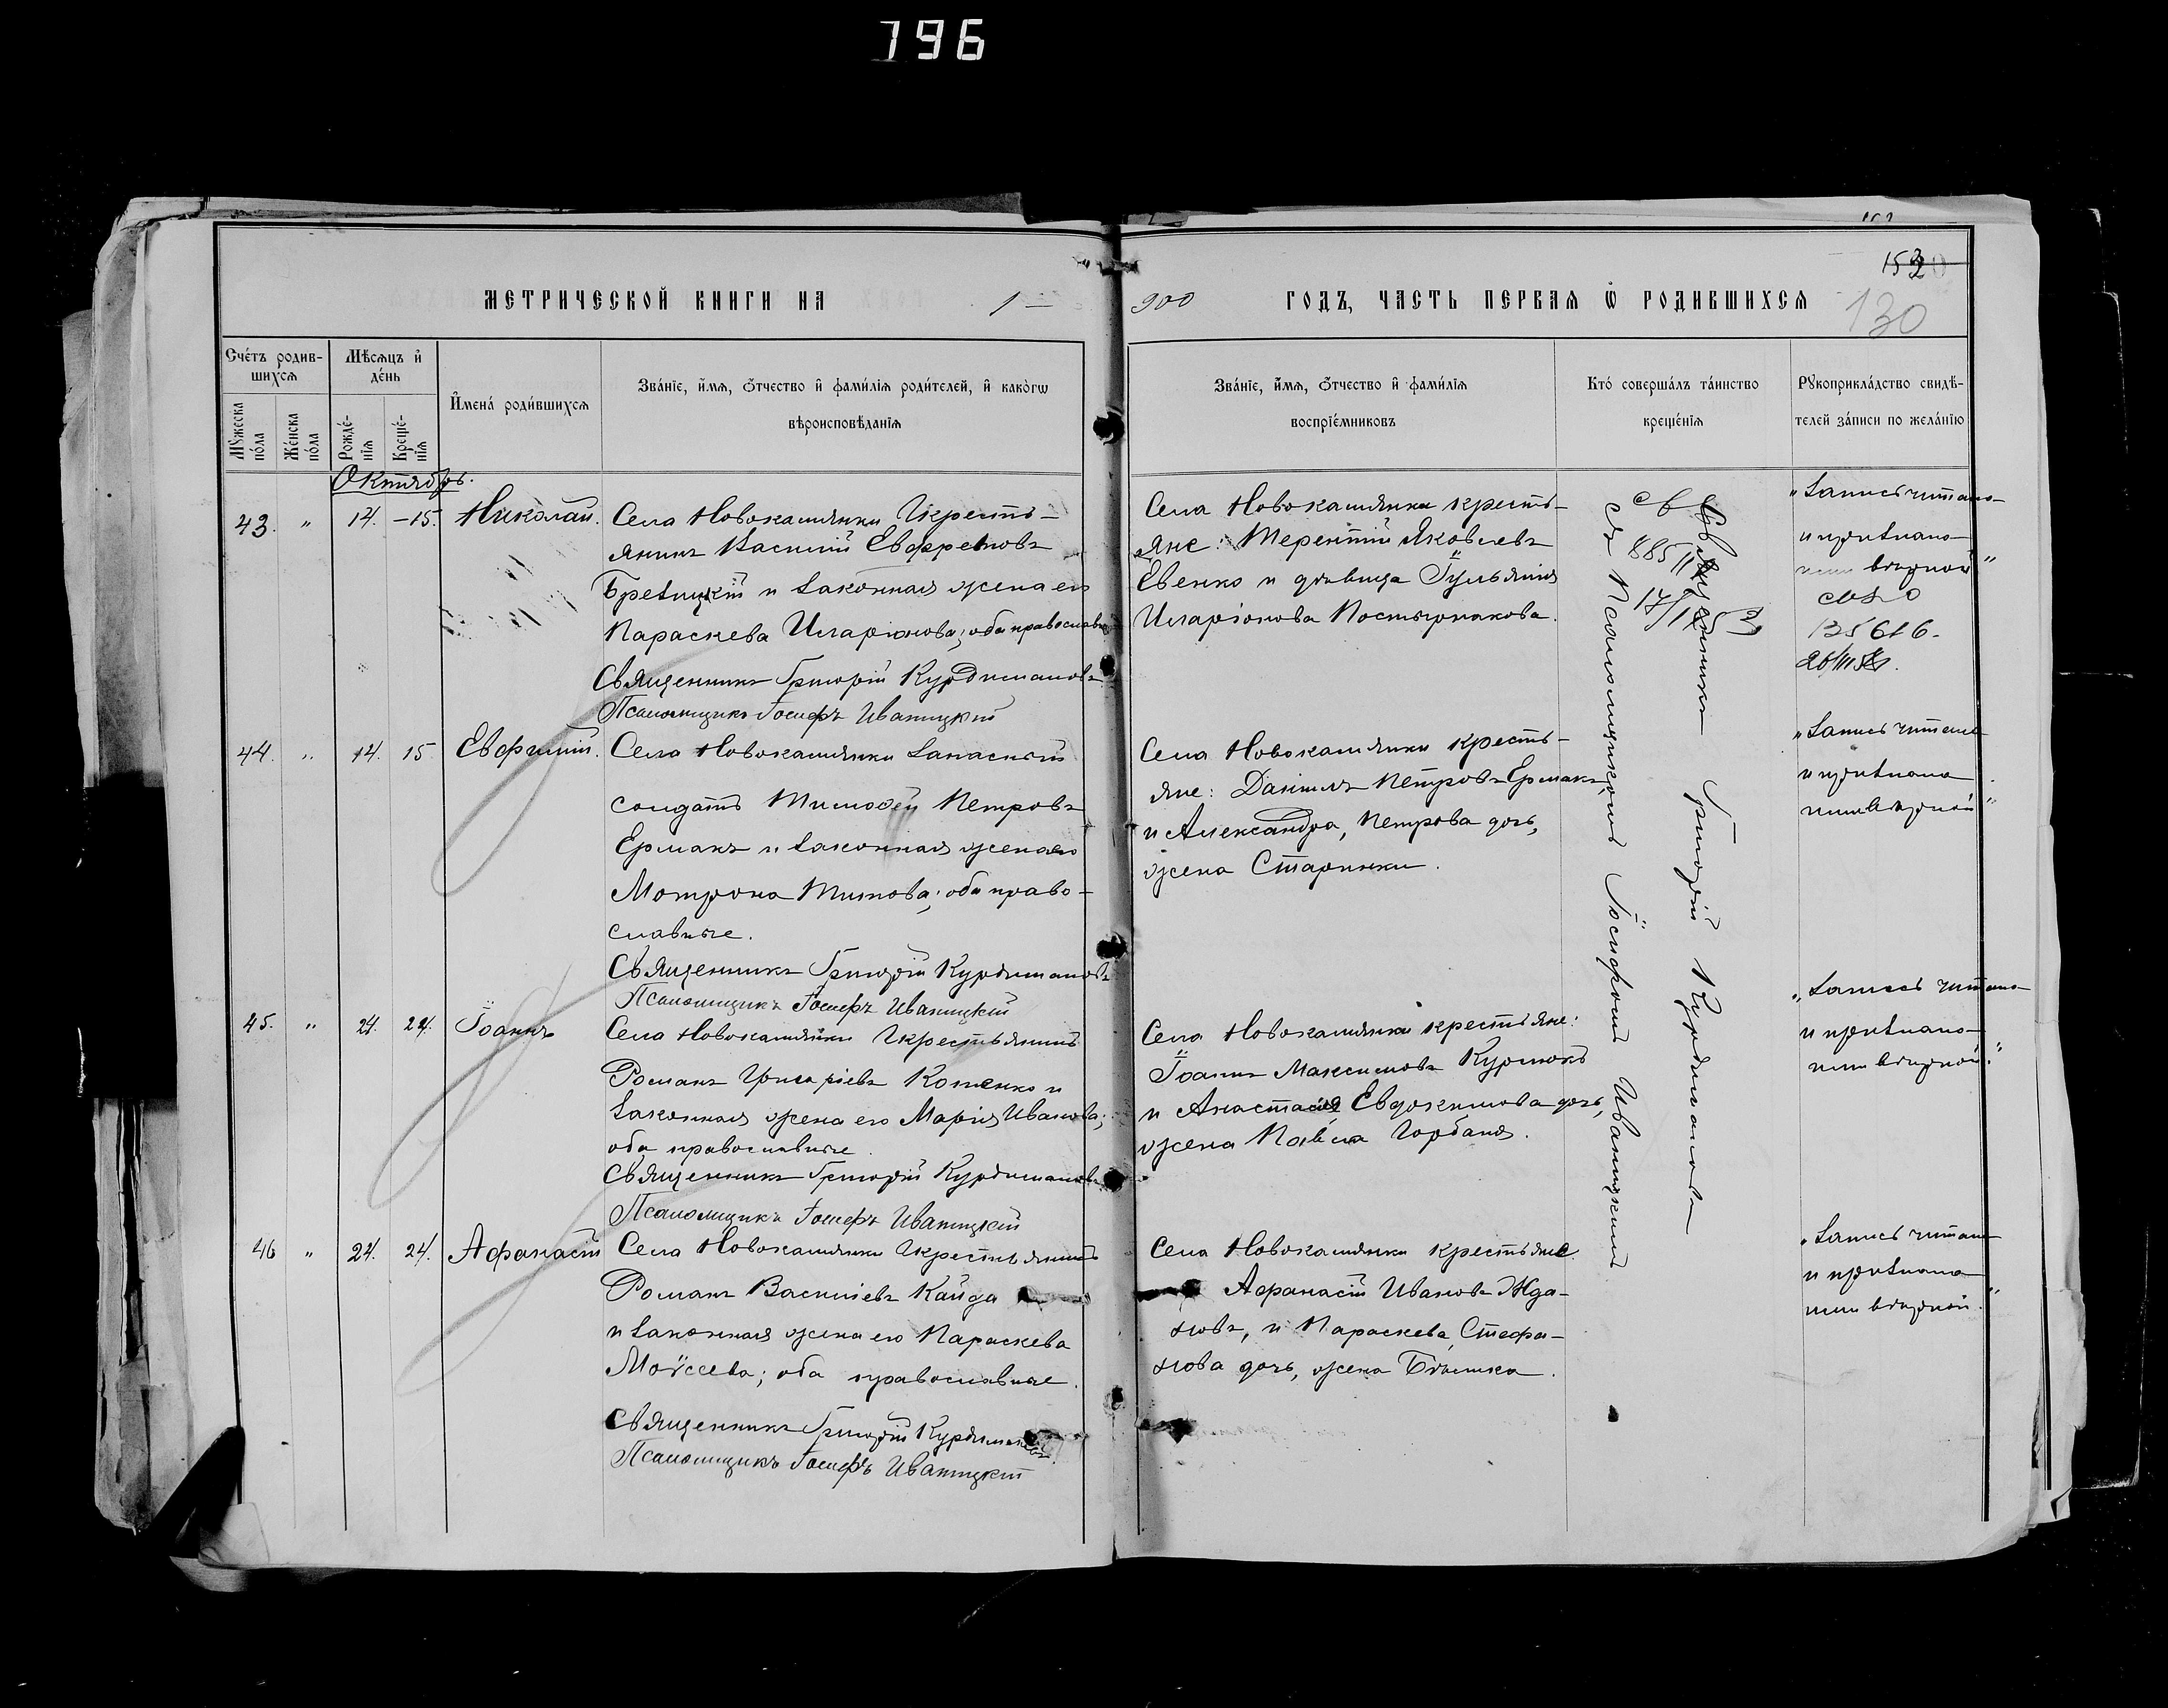 796
153
130
МЕТРИЧЕСКОЙ КНИГИ НА 1 —
900 ГОДЪ, ЧАСТЬ ПЕРВАЯ Ѡ РОДИВШИХСЯ
Счетъ родив-
шихся
Мужеска пола
Женска пола
Мѣсяцъ и
день
Рожде-
нія
Креще-
нія
Имена родившихся
Званіе, имя, отчество и фамилія родителей, и какогѡ
вѣроисповѣданія
Званіе, имя, отчество и фамилія
воспріемниковъ
Кто совершалъ таинство
крещенія
Рукоприкладство свидѣ-
телей записи по желанію
Октябрь.
43. " 14. – 15. Николай.
Села Новокамянки кресть-
янинъ Василій Евфремовъ
и законная жена его
Параскева Иларіонова; оба православные
Священникъ Григорій Курдимановъ
Псаломщикъ Іосифъ Иваницкій
Села Новокамянки кресть-
яне: Терентій Яковлевъ
Евенко и дѣвица Гульянія
Иларіонова Постырнакова.
"Запись читано
и признано
вѣрной"
135616.
44. " 14. 15 Евфимій.
Села Новокамянки Запасный
солдатъ Тимофей Петровъ
Ермакъ и законная жена его
Мотрона Титова; оба право-
славные.
Священникъ Григорій Курдимановъ
Псаломщикъ Іосифъ Иваницкій
Села Новокамянки кресть-
яне: Даніилъ Петровъ Ермакъ,
и Александра, Петрова дочь,
жена Старинки.
"Запись читано
и признано
вѣрной"
45. " 24. 24. Іоаннъ
Села Новокамянки крестьянинъ
Романъ Григоріевъ Котенко и
законная жена его Марія Иванова;
оба православные.
Священникъ Григорій Курдимановъ
Псаломщикъ Іосифъ Иваницкій
Села Новокамянки крестьяне:
Іоаннъ Максимовъ Курмокъ
и Анастасія Евдокимова дочь,
жена Павла Горбаня.
"Запись читано
и признано
вѣрной."
46 " 24. 24. Афанасій
Села Новокамянки крестьянинъ
Романъ Васильевъ Кайда
и законная жена его Параскева
Моѵсеева; оба православные.
Священникъ Григорій Курдимановъ
Псаломщикъ Іосифъ Иваницкій
Села Новокамянки крестьяне:
Афанасій Ивановъ Жда-
новъ, и Параскева, Стефа-
нова дочь, жена
"Запись читано
и признано
вѣрной."
Священникъ Григорій Курдимановъ
съ Псаломщикомъ Іосифомъ Иваницкимъ